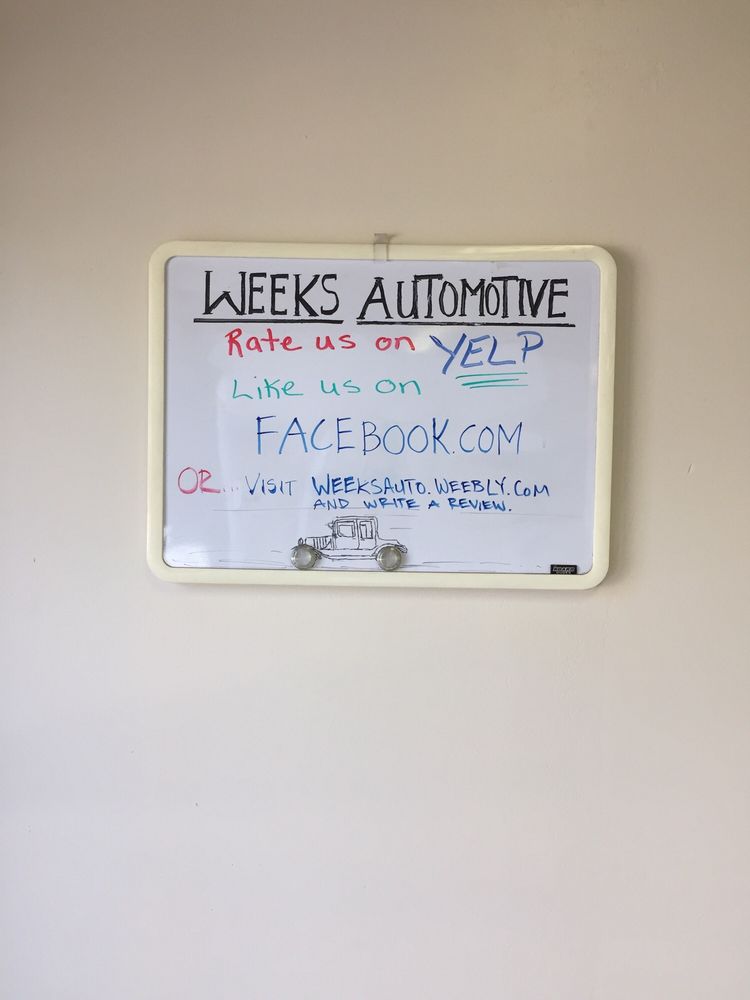 WEEKS AUTOMOTIVE
Rate us on YELP
Like us on
FACEBOOK.COM
OR... VISIT WEEKSAUTO.WEEBLY.COM
AND WRITE A REVIEW.